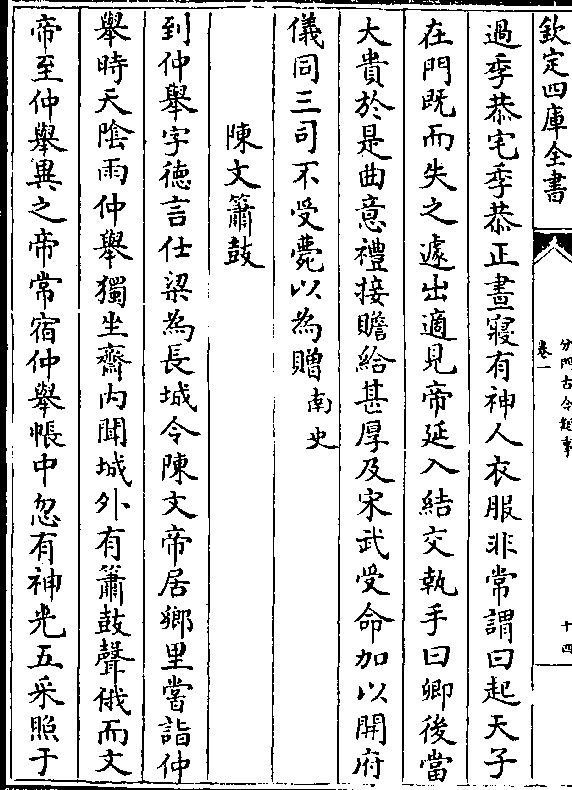 欽定四庫全書
卷一
分門古今類事
十四
過季恭宅季恭正晝寢有神人衣服非常謂曰起天子
在門既而失之遽出適見帝延入結交執手曰卿後當
大貴於是曲意禮接贍給甚厚及宋武受命加以開府
儀同三司不受薨以為贈南史
陳文簫鼓
到仲舉字德言仕梁為長城令陳文帝居鄉里嘗詣仲
舉時天陰雨仲舉獨坐齋內聞城外有簫鼓聲俄而文
帝至仲舉異之帝常宿仲舉帳中忽有神光五采照于